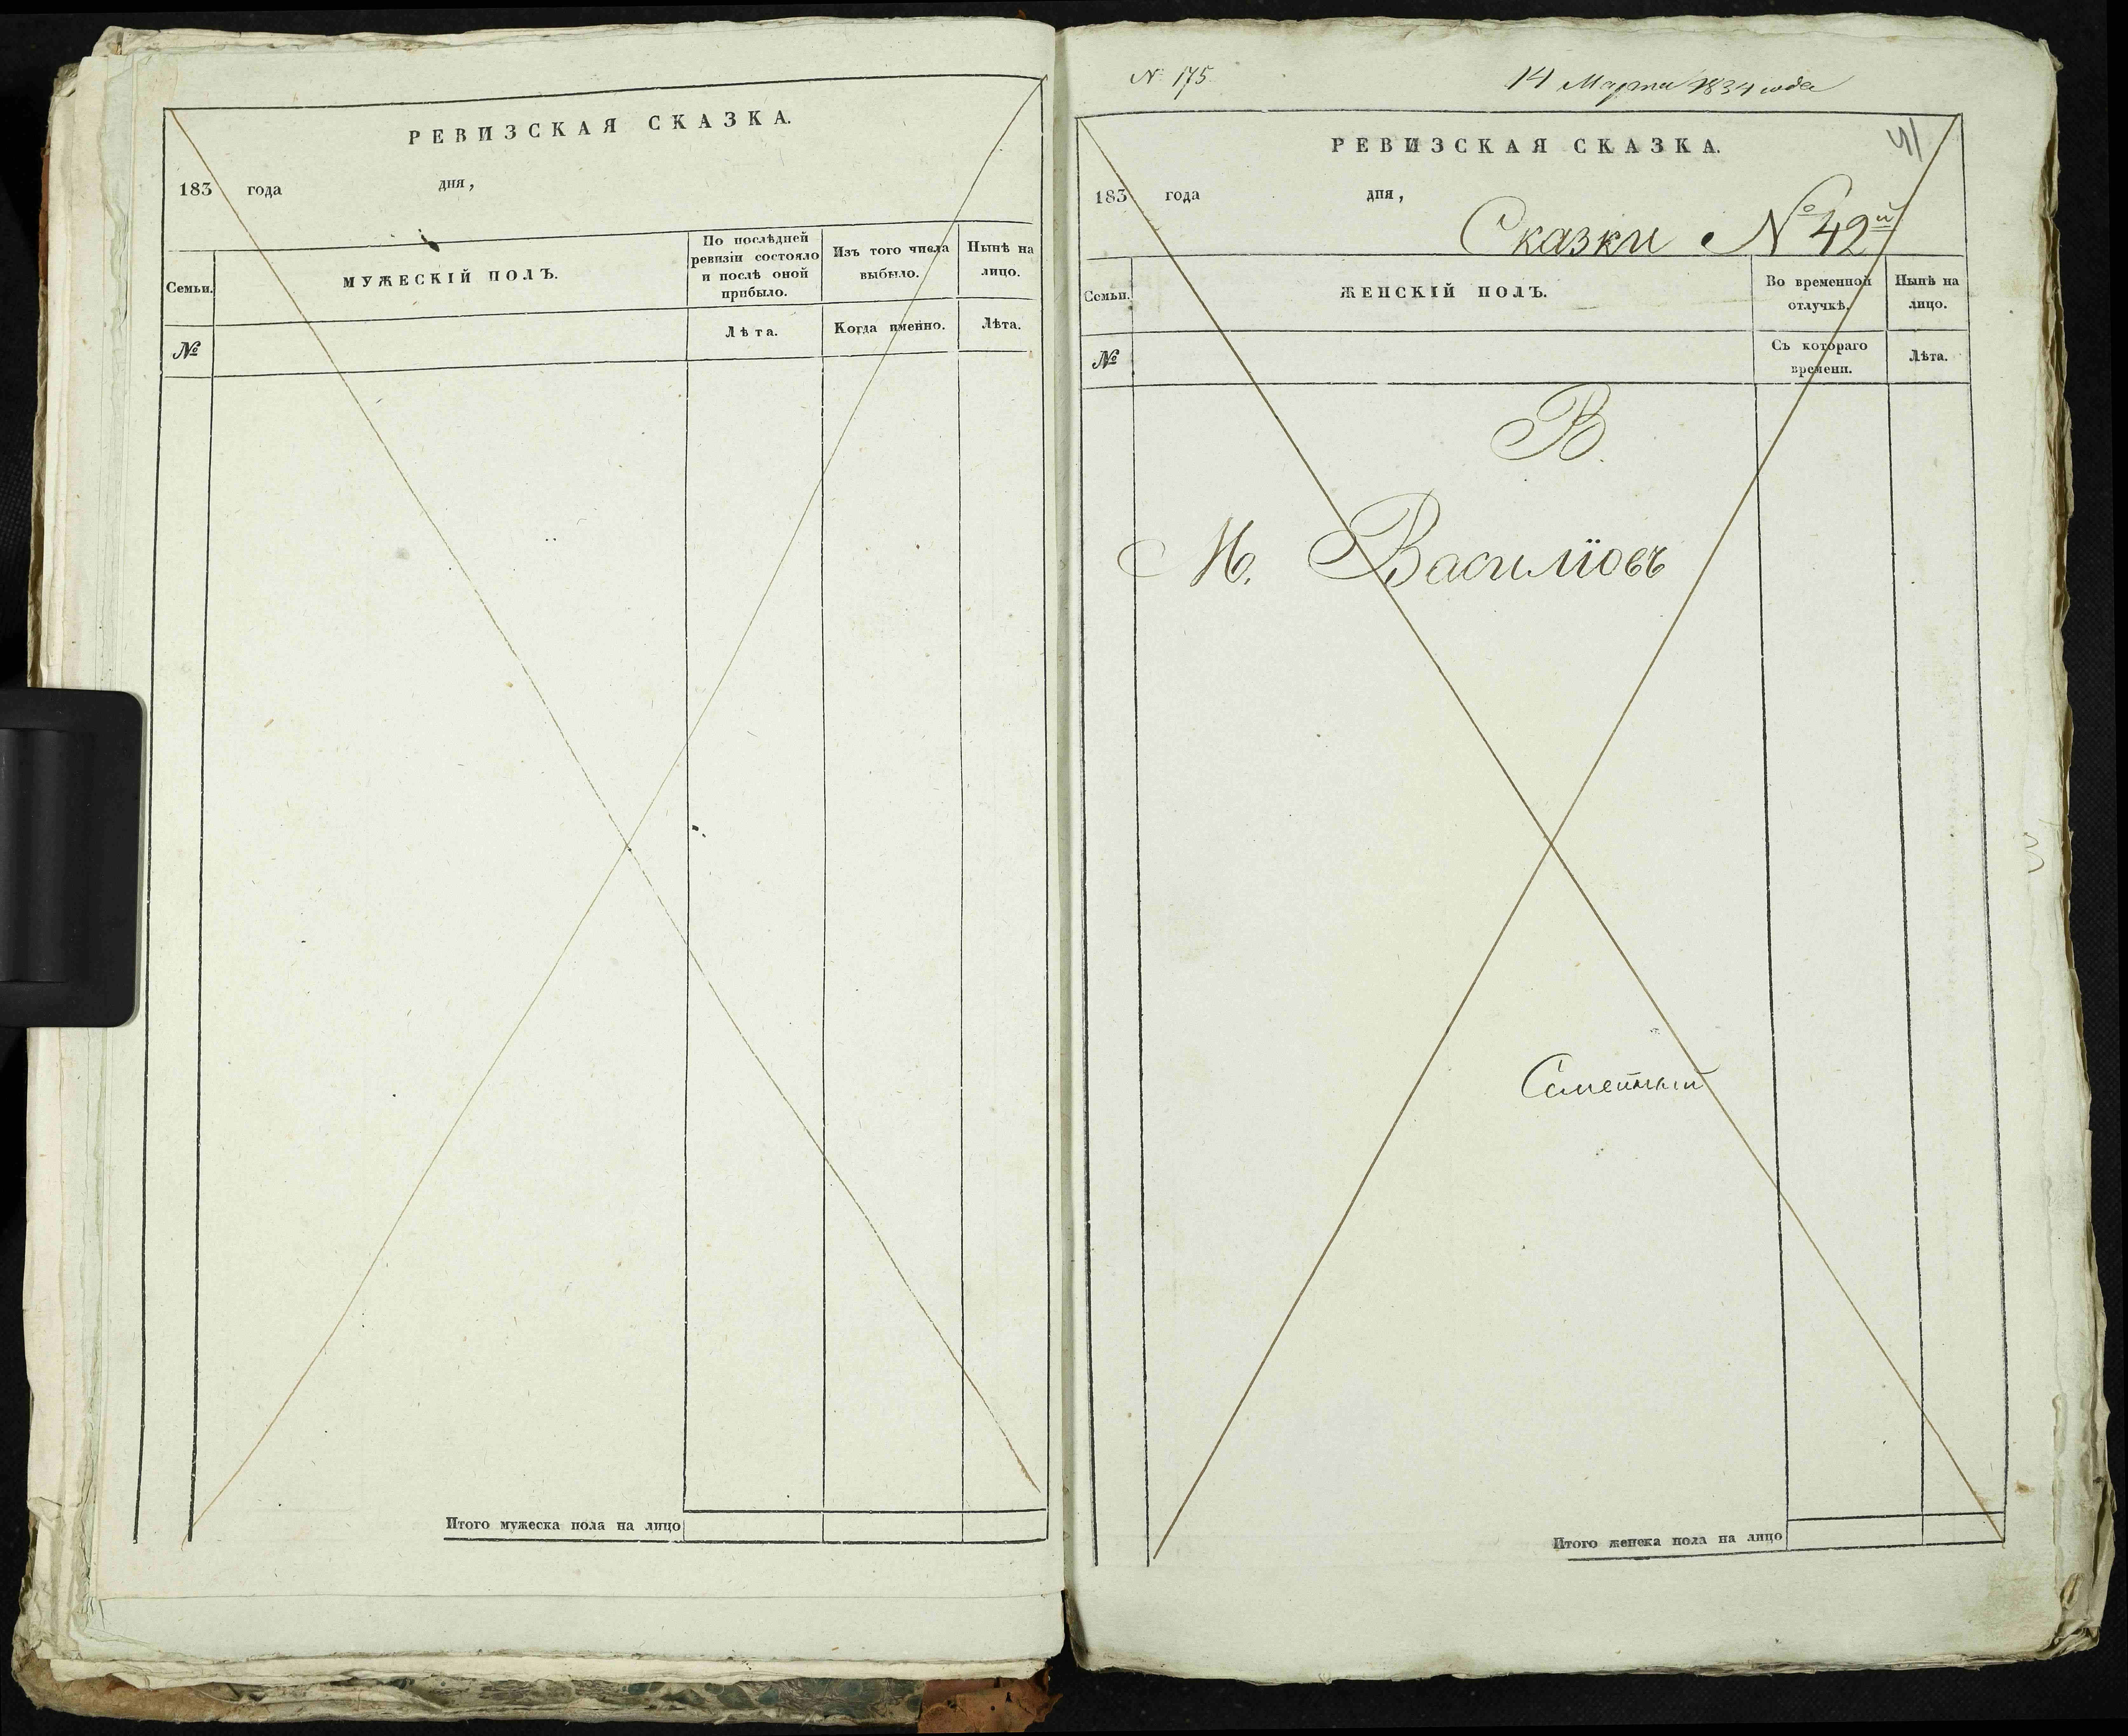 РЕВИЗСКАЯ СКАЗКА.
183 года дня,
Семьи.
МУЖЕСКІЙ ПОЛЪ.
По послѣдней
ревизіи состояло
и послѣ оной
прибыло.
Изъ того числа
выбыло.
Нынѣ на
лицо.
№
Лѣта.
Когда именно.
Лѣта.
Итого мужеска пола на лицо
№ 175
14 Марта 1834 года
РЕВИЗСКАЯ СКАЗКА.
41
183 года дня,
Сказки № 42й
Семьи.
ЖЕНСКІЙ ПОЛЪ.
Во временной
отлучкѣ.
Нынѣ на
лицо.
№
Съ котораго
времени.
Лѣта.
В.
М. Василіовъ
Семейный
Итого женска пола на лицо